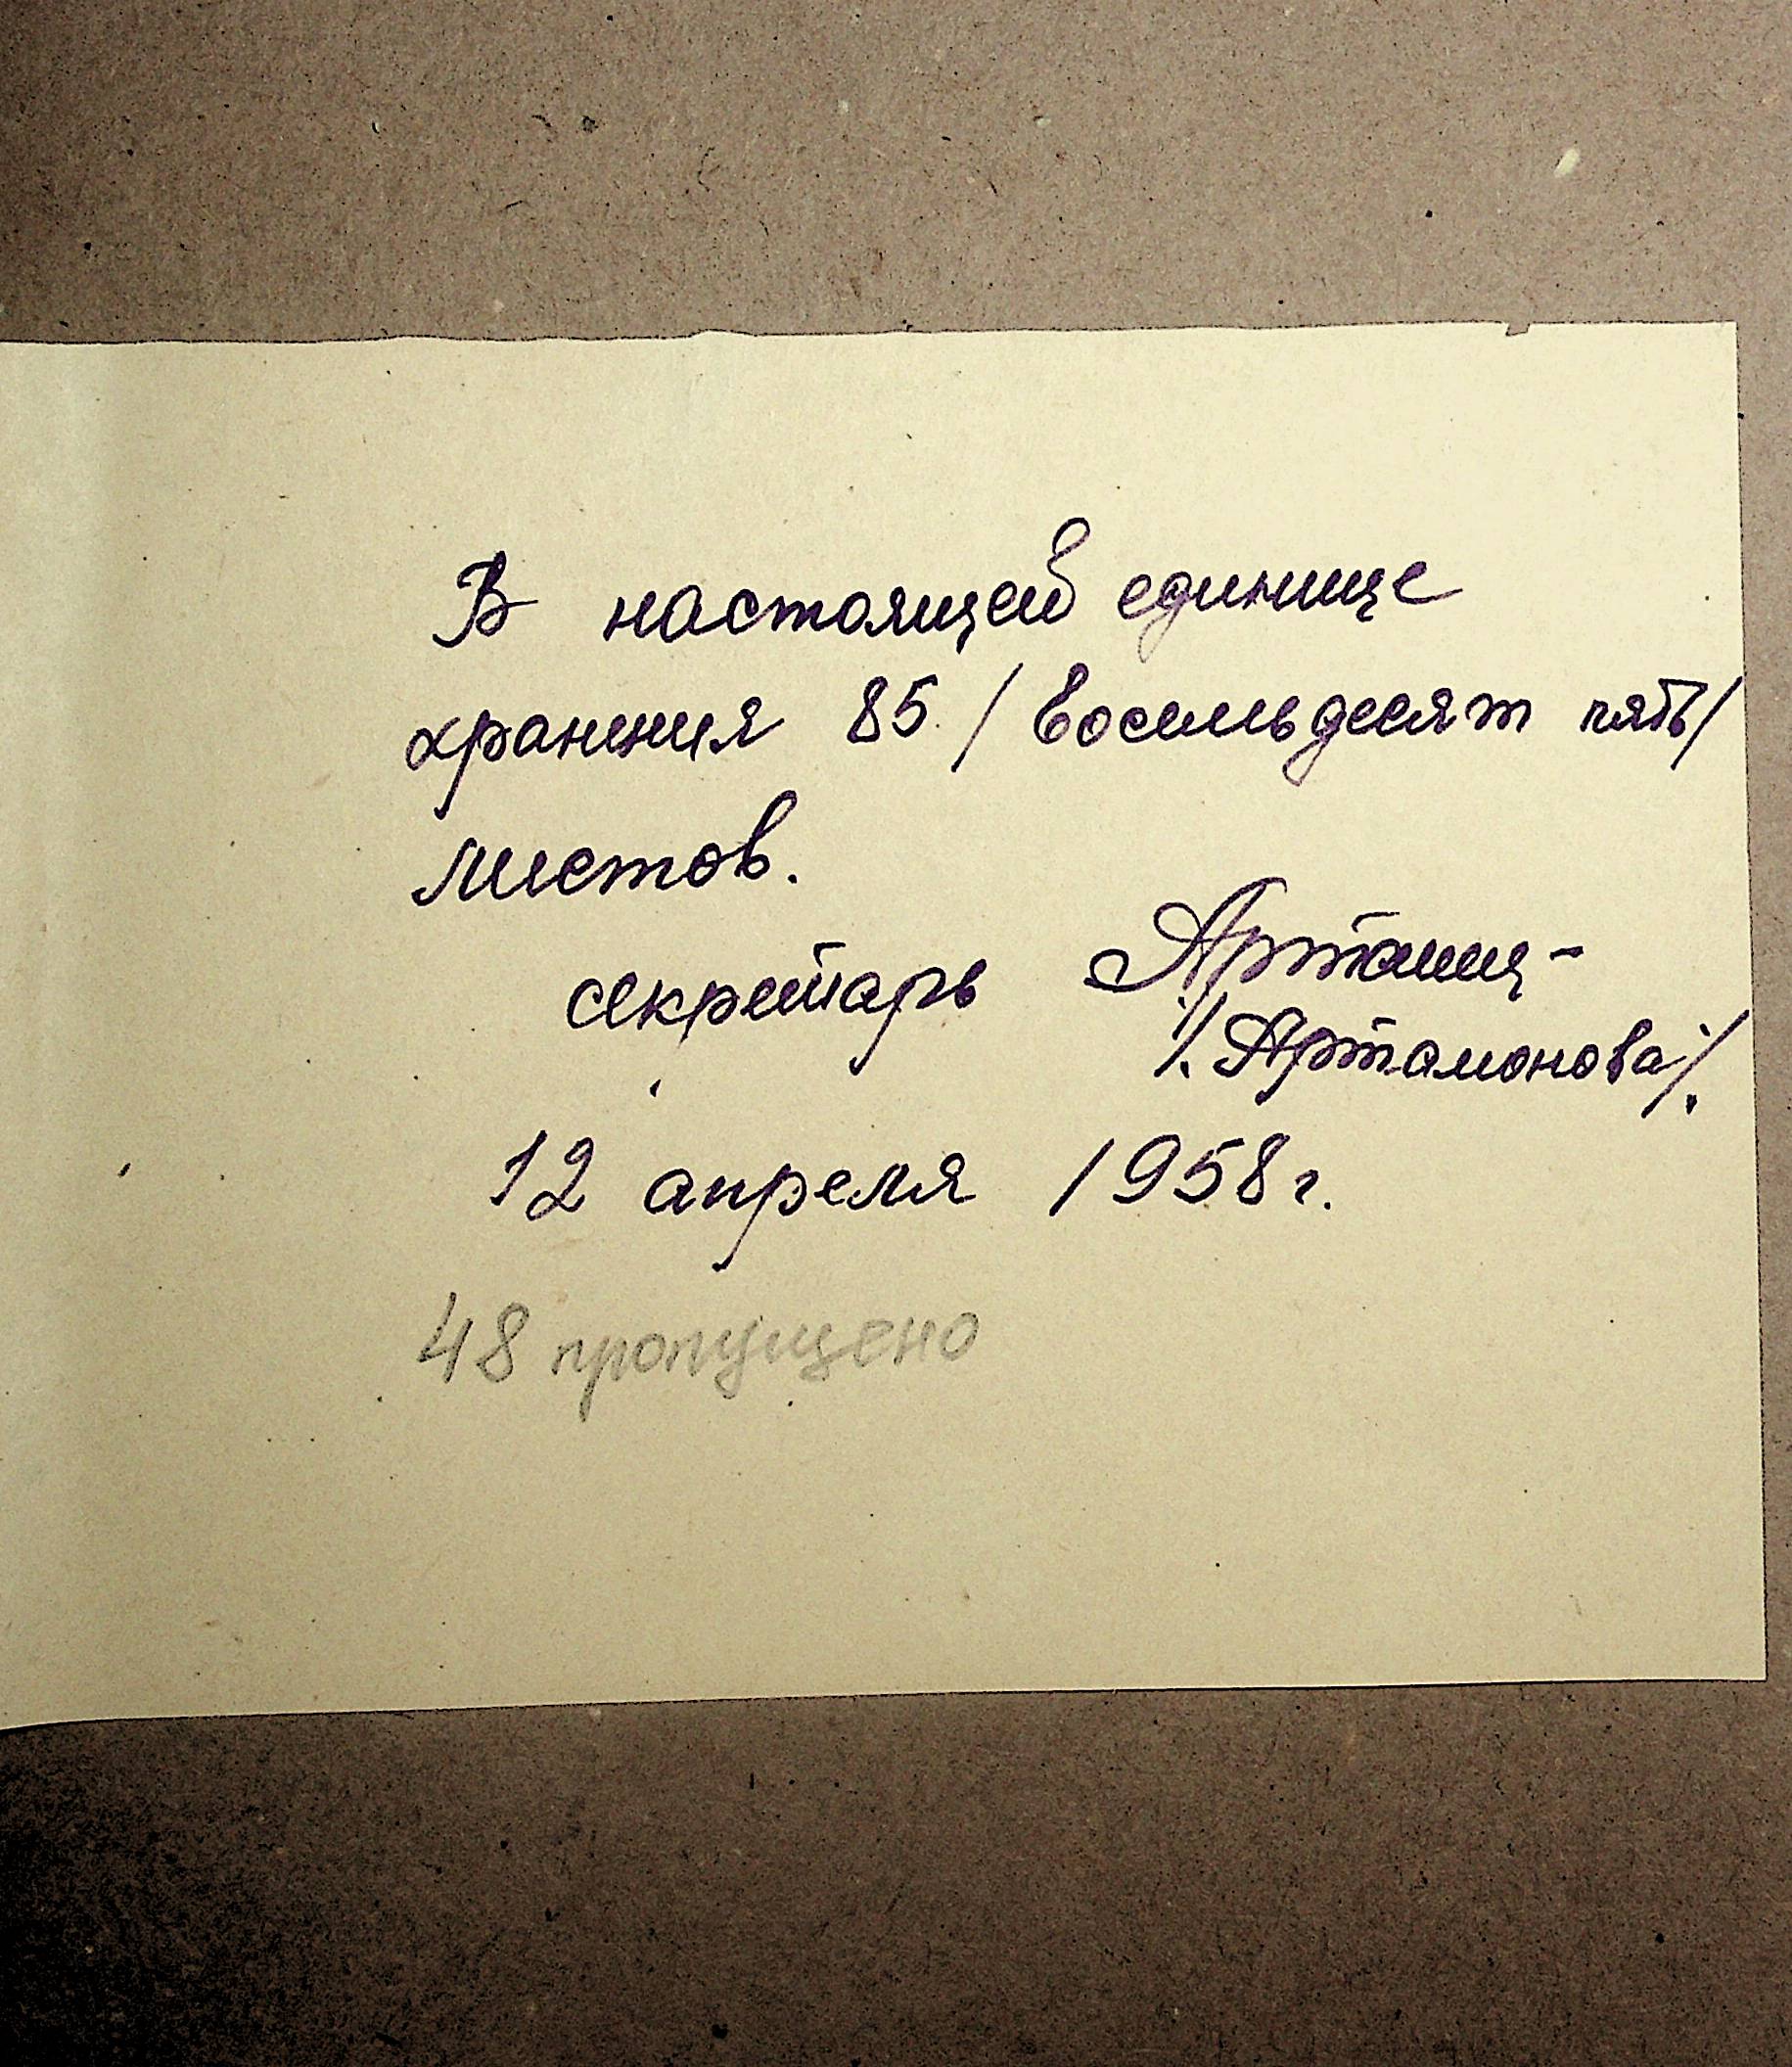 В настоящей единице
хранения 85 /восемьдесят пять/
листов.
секретарь
/Артамонова/.
12 апреля 1958 г.
48 пропущено